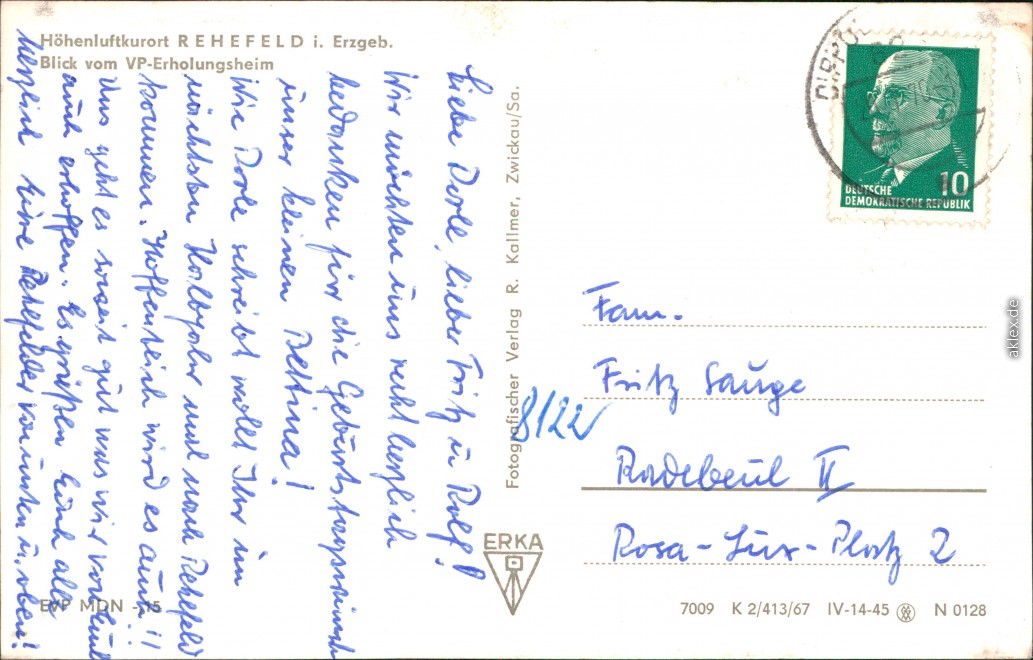 Höhenluftkurort REHEFELD i. Erzgeb.
Blick vom VP-Erholungsheim
Liebe Dorle, lieber Fritz u. Rolf!
Wir möchten uns recht herzlich
bedanken für die Geburtstagswünsche
unser kleinen Bettina!
Wie Dorle schreibt wollt Ihr im
nächsten Halbjahr mal nach Rehefeld
kommen. Hoffentlich wird es auch!!
Uns geht es soweit gut was wir von Euch
auch erhoffen. Es grüßen Euch alle
herzlich Eure Rehefelder von unten u. oben!
EVP MDN -,15
Fotografischer Verlag R. Kallmer, Zwickau/Sa.
ERKA
8122
DIPPOL
DEUTSCHE
DEMOKRATISCHE REPUBLIK
10
Fam.
Fritz Sauge
Radebeul II
Rosa-Lux-Platz 2
7009 K 2/413/67 IV-14-45 N 0128
aklex.de